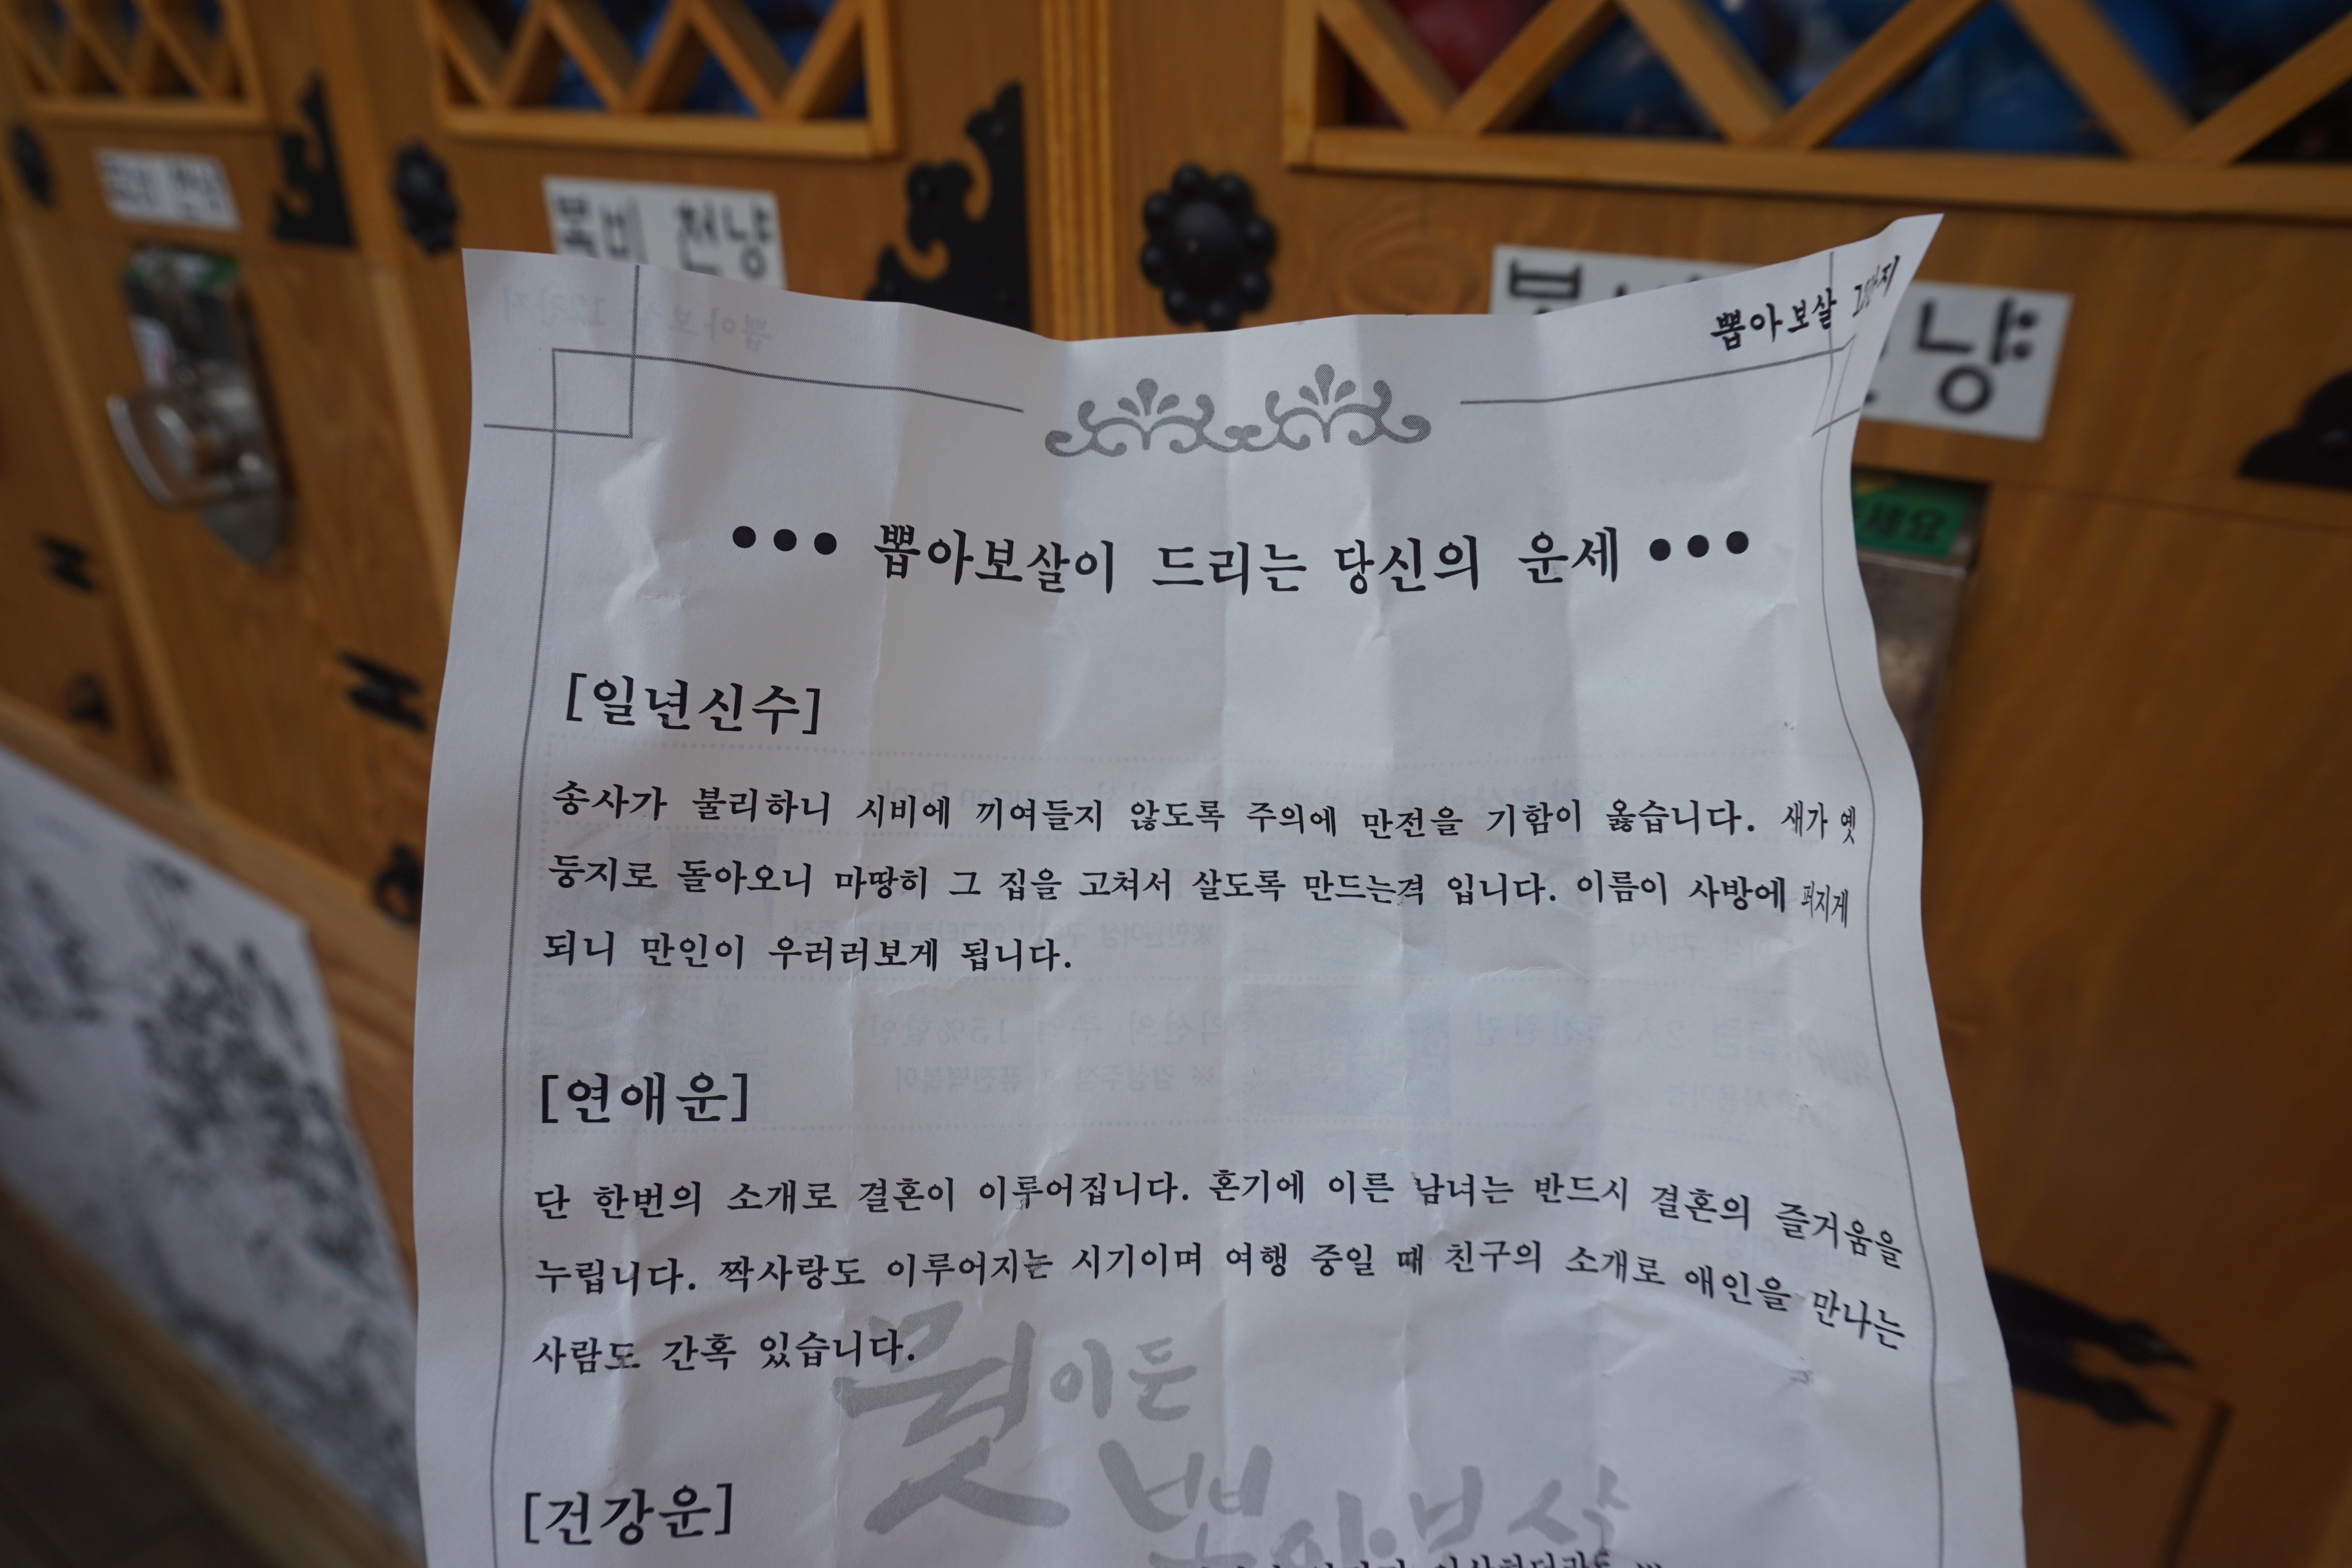 복비 천냥
냥
뽑아보살
세요
••• 뽑아보살이 드리는 당신의 운세 •••
[일년신수]
송사가 불리하니 시비에 끼여들지 않도록 주의에 만전을 기함이 옳습니다. 새가 옛
둥지로 돌아오니 마땅히 그 집을 고쳐서 살도록 만드는격 입니다. 이름이 사방에 퍼지게
되니 만인이 우러러보게 됩니다.
[연애운]
단 한번의 소개로 결혼이 이루어집니다. 혼기에 이른 남녀는 반드시 결혼의 즐거움을
누립니다. 짝사랑도 이루어지는 시기이며 여행 중일 때 친구의 소개로 애인을 만나는
사람도 간혹 있습니다.
뭣이든
뽑아보살
[건강운]